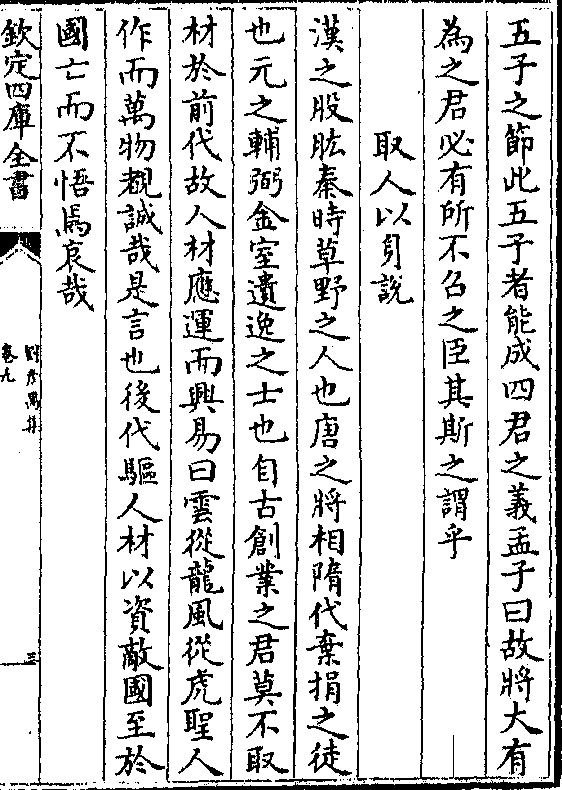 五子之節此五子者能成四君之義孟子曰故將大有
為之君必有所不召之臣其斯之謂乎
取人以身說
漢之股肱秦時草野之人也唐之將相隋代棄捐之徒
也元之輔弼金室遺逸之士也自古創業之君莫不取
材於前代故人材應運而興易曰雲從龍風從虎聖人
作而萬物覩誠哉是言也後代驅人材以資敵國至於
國亡而不悟焉哀哉
欽定四庫全書
卷九
三